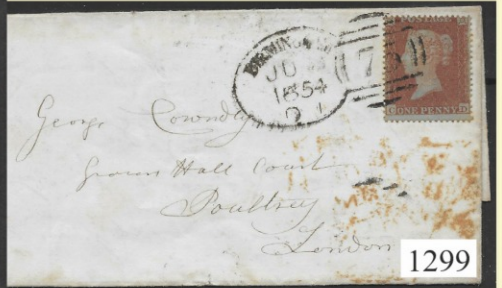 BIRMINGHAM
JU
1854
75
C ONE PENNY D
George
Grocers Hall Court
Poultrey
London
1299